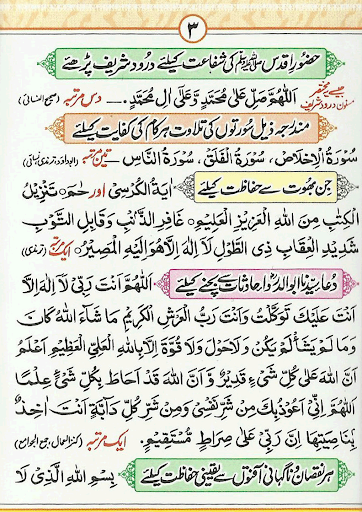 ٣
حضورِ اقدس ﷺ کی شفاعت کیلئے درود شریف پڑھئے
اَللّٰهُمَّ صَلِّ عَلٰى مُحَمَّدٍ وَّعَلٰى اٰلِ مُحَمَّدٍ۔ دس مرتبہ (صحیح النسائی) جیسے یہ مختصر مسنون درود شریف
مندرجہ ذیل سورتوں کی تلاوت ہر کام کی کفایت کیلئے
سُوْرَةُ الْاِخْلَاصِ، سُوْرَةُ الْفَلَقْ، سُوْرَةُ النَّاسِ۔ تین مرتبہ (ابوداؤد، ترمذی، نسائی)
جن بھوت سے حفاظت کیلئے اٰيَةُ الْكُرْسِىْ اور حٰمٓ ۚ تَنْزِيْلُ
الْكِتٰبِ مِنَ اللهِ الْعَزِيْزِ الْعَلِيْمِ ۙ غَافِرِ الذَّنْۢبِ وَقَابِلِ التَّوْبِ
شَدِيْدِ الْعِقَابِ ذِى الطَّوْلِ لَآ اِلٰهَ اِلَّا هُوَ اِلَيْهِ الْمَصِيْرُ ۔ ایک مرتبہ (ترمذی)
دُعا سیّدنا ابوالدرداؓ حادثات سے بچنے کیلئے اَللّٰهُمَّ اَنْتَ رَبِّىْ لَآ اِلٰهَ اِلَّا
اَنْتَ عَلَيْكَ تَوَكَّلْتُ وَاَنْتَ رَبُّ الْعَرْشِ الْكَرِيْمِ مَا شَآءَ اللهُ كَانَ
وَمَا لَمْ يَشَأْ لَمْ يَكُنْ وَلَا حَوْلَ وَلَا قُوَّةَ اِلَّا بِاللهِ الْعَلِىِّ الْعَظِيْمِ اَعْلَمُ
اَنَّ اللهَ عَلٰى كُلِّ شَىْءٍ قَدِيْرٌ وَّ اَنَّ اللهَ قَدْ اَحَاطَ بِكُلِّ شَىْءٍ عِلْمًا
اَللّٰهُمَّ اِنِّىْ اَعُوْذُ بِكَ مِنْ شَرِّ نَفْسِىْ وَمِنْ شَرِّ كُلِّ دَآبَّةٍ اَنْتَ اٰخِذٌۢ
بِنَاصِيَتِهَا اِنَّ رَبِّىْ عَلٰى صِرَاطٍ مُّسْتَقِيْمٍ۔ ایک مرتبہ (کنز العمال، جمع الجوامع)
ہر نقصان و ناگہانی آفتوں سے یقینی حفاظت کیلئے بِسْمِ اللهِ الَّذِىْ لَا